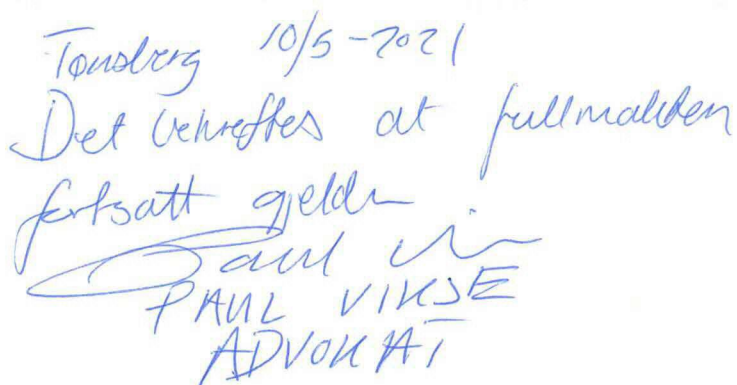 Tønsberg 10/5-2021
Det bekreftes at fullmakten
fortsatt gjelder
Paul
PAUL VIKSE
ADVOKAT